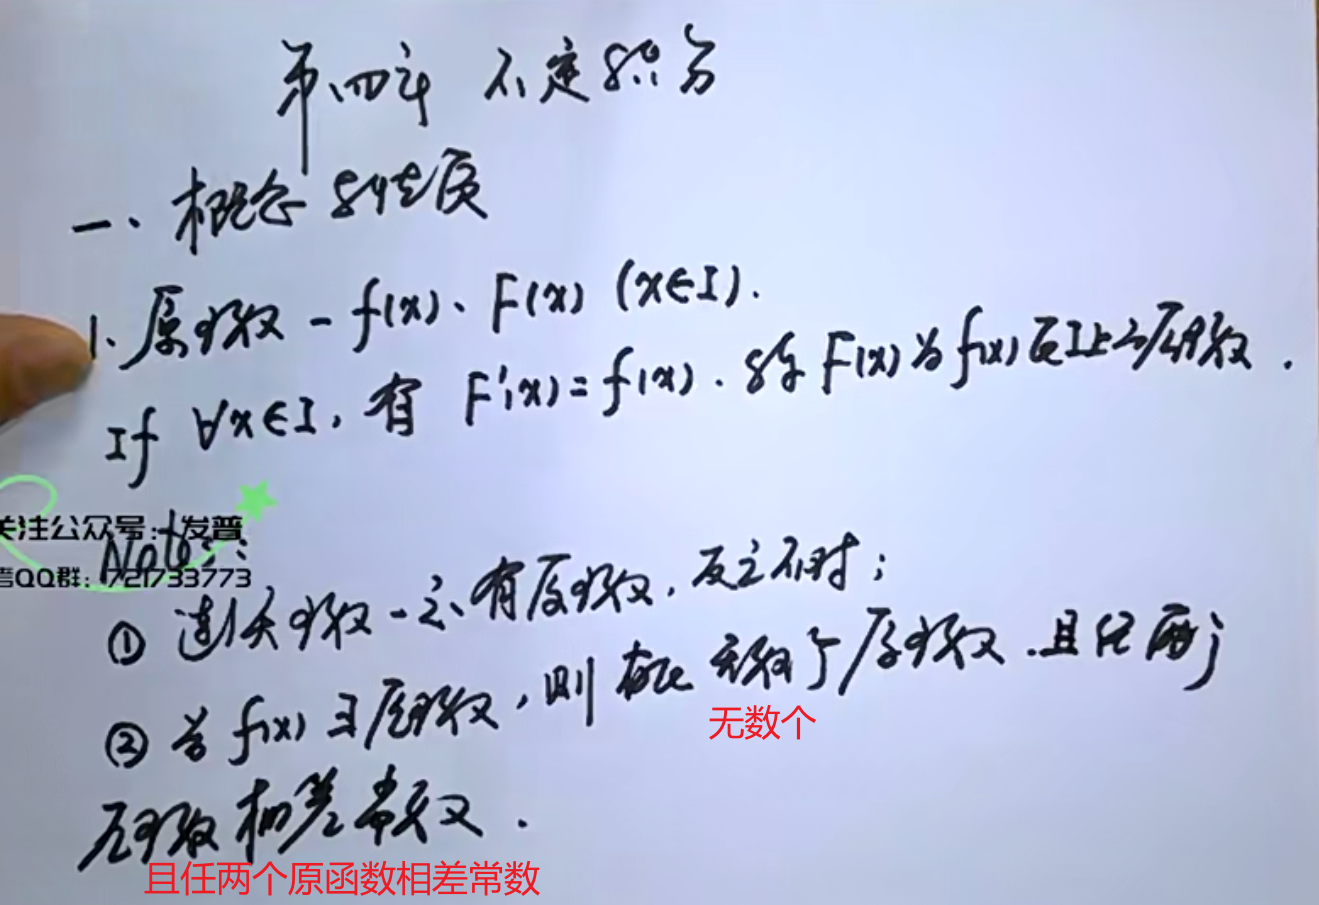 第四章 不定积分
一、概念与性质
1. 原函数 - f(x)、F(x) (x∈I).
If ∀x∈I, 有 F'(x)=f(x). 称 F(x)为f(x)在I上的原函数.
关注公众号: 发普
Notes:
QQ群: 1721733773
① 连续函数一定有原函数, 反之不对;
② 若 f(x) ∃原函数, 则存在无数个原函数. 且任两个
无数个
原函数相差常数.
且任两个原函数相差常数